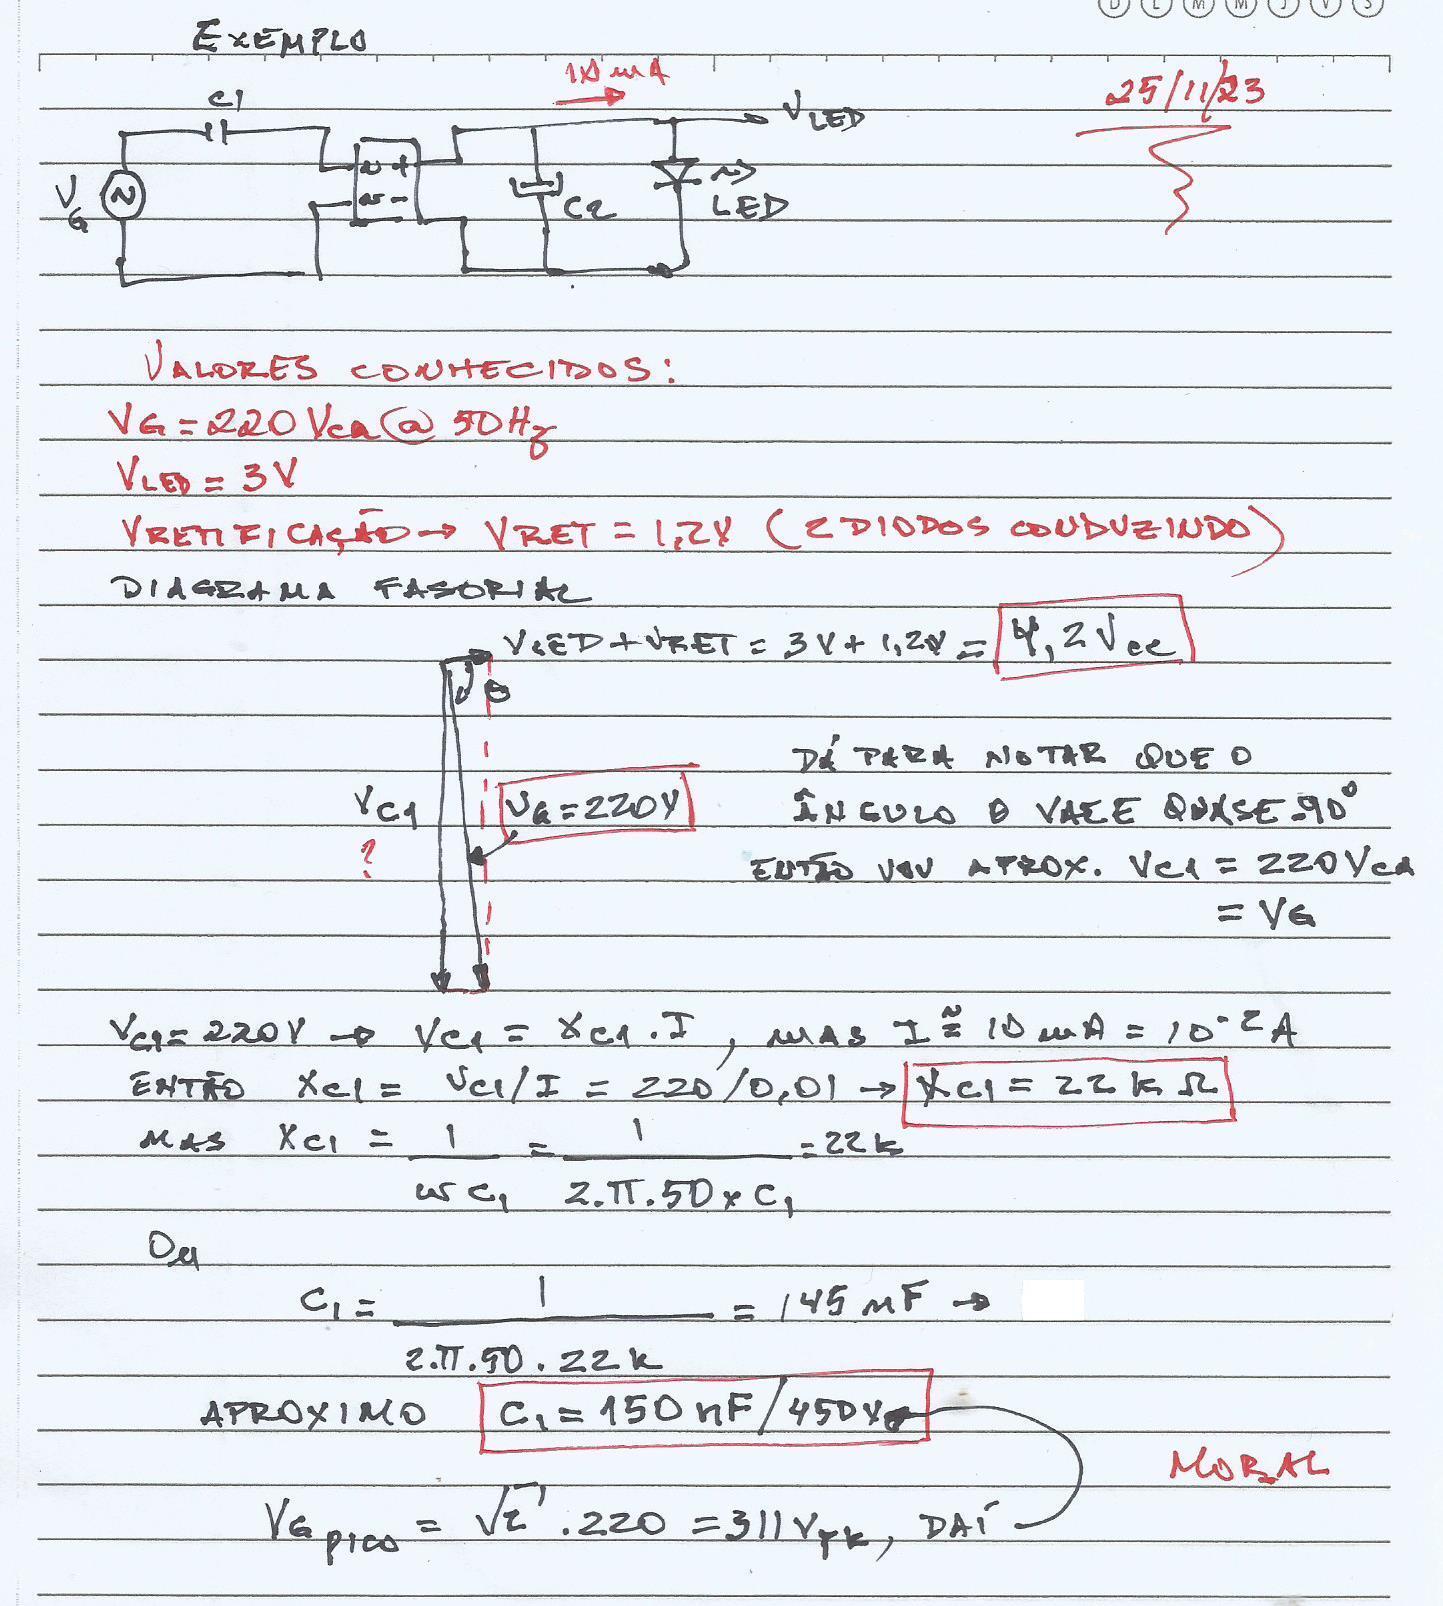 D L M M J V S
EXEMPLO
10 mA
25/11/23
C1
VLED
VG
~
~ +
~ -
C2
LED
VALORES CONHECIDOS:
VG = 220 VCA @ 50Hz
VLED = 3V
VRETIFICAÇÃO → VRET = 1,2V (2 DIODOS CONDUZINDO)
DIAGRAMA FASORIAL
VLED + VRET = 3V + 1,2V = 4,2 Vcc
θ
DÁ PARA NOTAR QUE O
VC1
VG = 220V
ÂNGULO θ VALE QUASE 90°
?
ENTÃO VOU APROX. VC1 = 220VCA
= VG
VC1 = 220V → VC1 = XC1 . I , MAS I ≅ 10 mA = 10-2 A
ENTÃO XC1 = VC1/I = 220/0,01 → XC1 = 22 k Ω
MAS XC1 = 1 = 1 = 22k
ω C1 2.π.50 x C1
OU
C1 = 1 = 145 nF →
2.π.50 . 22 k
APROXIMO C1 = 150 nF/450V
MORAL
VG pico = √2 . 220 = 311 Vpk, DAÍ